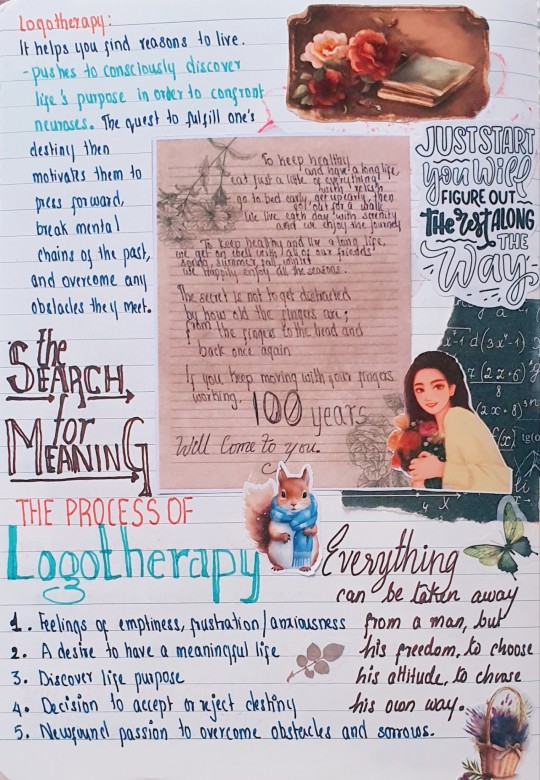 Logotherapy:
It helps you find reasons to live.
-pushes to consciously discover
life's purpose in order to confront
neuroses. The quest to fulfill one's
destiny then
motivates them to
press forward,
break mental
chains of the past,
and overcome any
obstacles they meet.
To keep healthy
and have a long life,
eat just a little of everything
with relish
go to bed early, get up early, then
go out for a walk
We live each day with serenity
and we enjoy the journey
To keep healthy and live a long life,
we get on well with all of our friends
spring, summer, fall, winter
we happily enjoy all the seasons.
The secret is not to get distracted
by how old the fingers are;
from the fingers to the head and
back once again
If you keep moving with your fingers
working,
100 years
Will come to you.
JUST START
you will
FIGURE OUT
THE rest ALONG
THE
Way
the
SEARCH
for
MEANING
THE PROCESS OF
Logotherapy
1. Feelings of empliness, frustration/anxiousness
2. A desire to have a meaningful life
3. Discover life purpose
4. Decision to accept or reject destiny
5. Newfound passion to overcome obstacles and sorrows.
Everything
can be taken away
from a man, but
his freedom, to choose
his attitude, to choose
his own way.